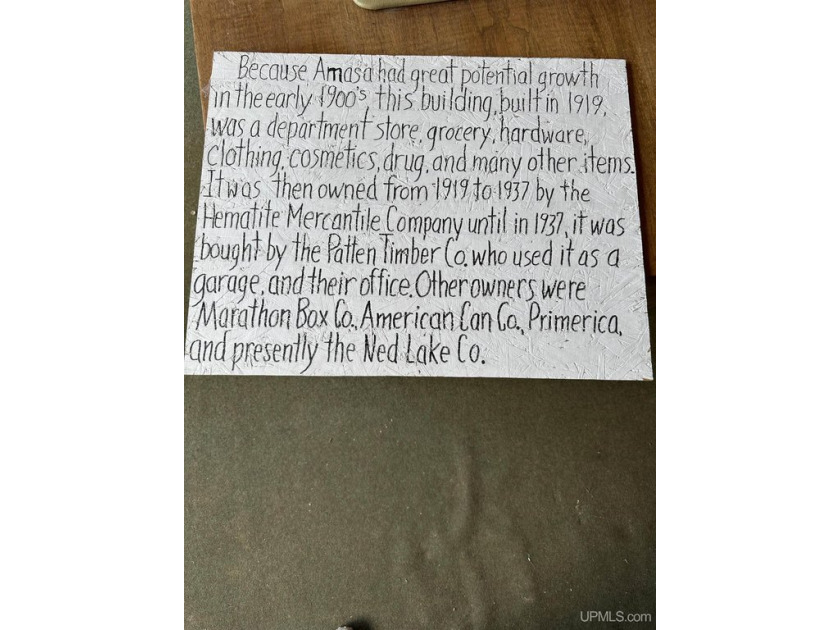 Because Amasa had great potential growth
in the early 1900's this building, built in 1919,
was a department store, grocery, hardware,
clothing, cosmetics, drug, and many other items.
It was then owned from 1919 to 1937 by the
Hematite Mercantile Company until in 1937, it was
bought by the Patten Timber Co. who used it as a
garage, and their office. Other owners were
Marathon Box Co., American Can Co., Primerica,
and presently the Ned Lake Co.
UPMLS.com